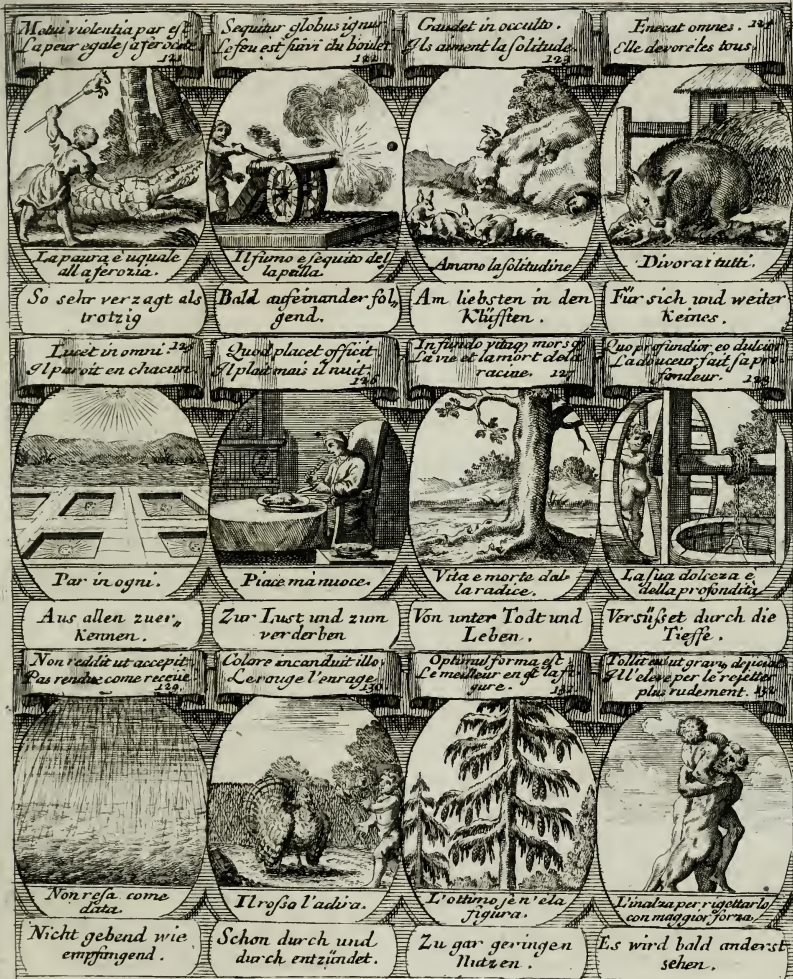 Motui violentia par est
La peur egale sa ferocité
121
La paura è uguale
all a ferozia.
So sehr verzagt als
trotzig
Sequitur globus ignur
Le feu est suivi du boulet
122
Il fiemo e sequito del
la palla.
Bald aufeinander fol„
gend.
Gaudet in occulto.
Ils aiment la solitude.
123
Amano la solitudine
Am liebsten in den
Klüfften.
Enecat omnes. 124
Elle devore les tous.
Divora i tutti.
Für sich und weiter
keines.
Lucet in omni. 125
Il paroit en chacun
Par in ogni.
Aus allen zuer„
kennen.
Quod placet officit
Il plait mais il nuit.
126
Piace mà nuoce.
Zur Lust und zum
verderben
In fundo vitaq mors q
La vie et la mort de la
racine. 127
Vita e morte dal
la radice.
Von unter Todt und
Leben.
Quo profundior eo dulcior
La douceur fait sa pro
fondeur. 128
La sua dolceza è
della profondità
Versüsset durch die
Tieffe.
Non reddit ut accepit
Pas rendue come receue
129.
Non resa come
data.
Nicht gebend wie
empfangend.
Colore incanduit illo.
Le rouge l'enrage
130
Il rosso l'adira.
Schon durch und
durch entzündet.
Optimul forma est
Le meilleur en est la fi
gure. 131
L'ottimo sè n'e la
figura.
Zu gar geringen
Nutzen.
Tollit ut gravius dejiciat
Il l'eleve per le rejetter
plus rudement. 132
L'inalza per rigettarlo
con maggior forza.
Es wird bald anderst
sehen.